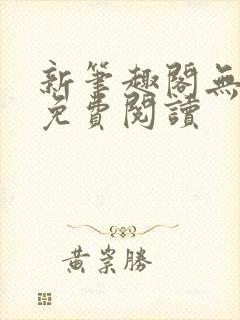 新筆趣閣無
免費閱讀
黃崇勝